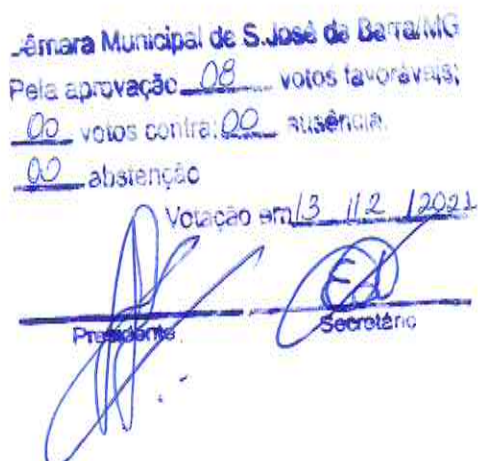 Câmara Municipal de S.José da Barra/MG
Pela aprovação 08 votos favoráveis;
00 votos contra; 00 ausência.
00 abstenção
Votação em 13 / 12 / 2021
Presidente Secretário